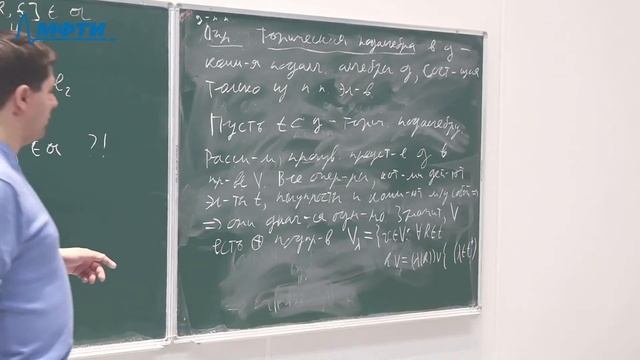 МФТИ
∈ α
∈ α ?!
Опр. Торическая подалгебра в g –
комм-я подалг. алгебры g, сост-щая
только из п.п. эл-в.
Пусть t ⊂ g – торич. подалгебра.
Рассм-м произв. предст-е g в
пр-ве V. Все опер-ры, кот-ми дей-ют
эл-ты t, полупросты и комм-ют м/у собой ⇒
⇒ они диаг-ся одн-но. Значит, V
есть ⊕ подпр-в V_λ = {v ∈ V: ∀h ∈ t
h v = (λ(h)) v} (λ ∈ t*)